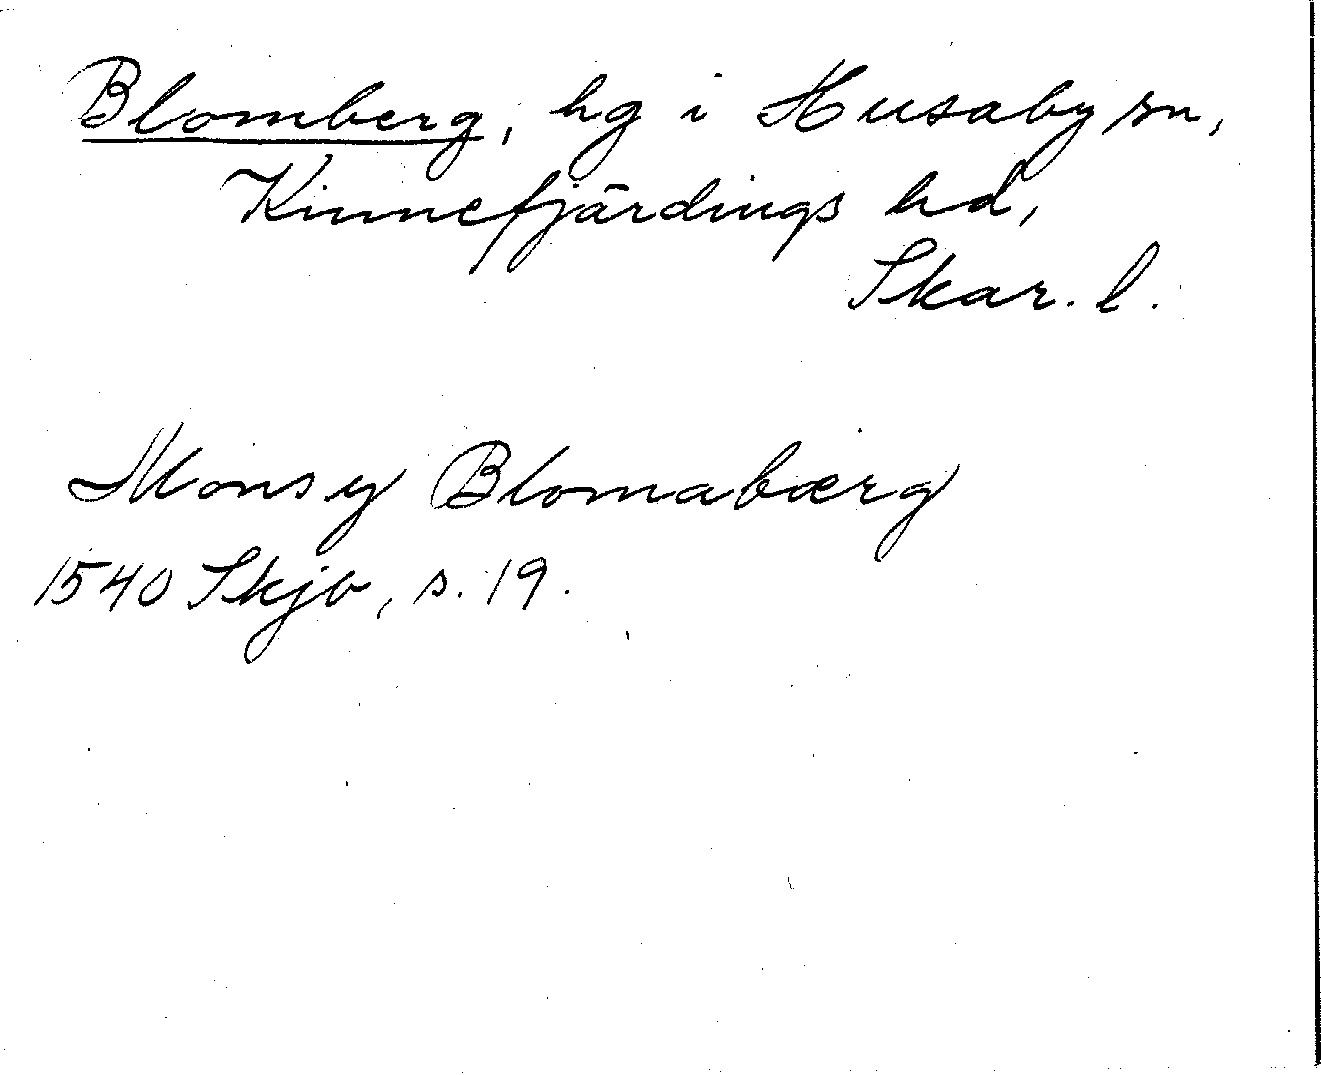 Blomberg, hg i Husaby sn,
Kinnefjärdings hd,
Skar. l.
Monsy Blomabærg
1540 Skjb, s. 19.